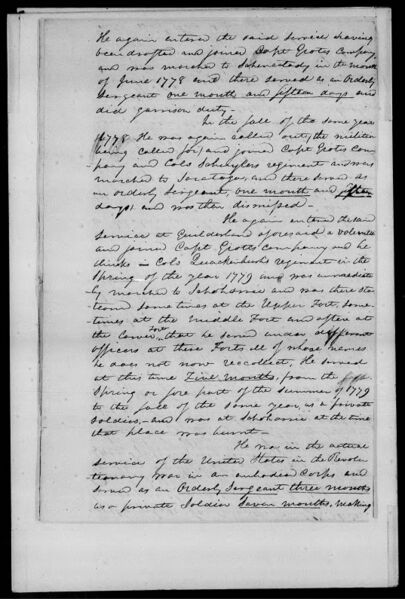 He again entered the said service having
been drafted and joined Capt Grots Company
and was marched to Schenectady in the month
of June 1778 and there served as an Orderly
Sergeant one month and fifteen days and
did garrison duty-
In the fall of the same year
1778 He was again called out, the militia
being Called for, and joined Capt Grots Com
pany and Cols Schuylers regiment and was
marched to Saratoga, and there served as
an orderly Sergeant, one month and fifteen
days, and was then dismissed-
He again entered the
service at Guilderland aforesaid a Volunteer
and joined Capt Grotts Company and he
thinks in Cols Quackenbush regiment in the
Spring of the year 1779 and was immediate
ly marched to Schoharie and was there sta
tioned some times at the Upper Fort, some
times at the Middle Fort and often at
the lower Fort, that he served under different
officers at these Forts all of whose names
he does not now recollect, He served
at this time Five months, from the
Spring or fore part of the Summer of 1779
to the fall of the same year, as a private
Soldier,- and was at Schoharie at the time
that place was burnt-
He was in the actual
service of the United States in the Revolu
tionary War in an embodied Corps and
served as an Orderly Sergeant three months
as a private Soldier Seven months, making